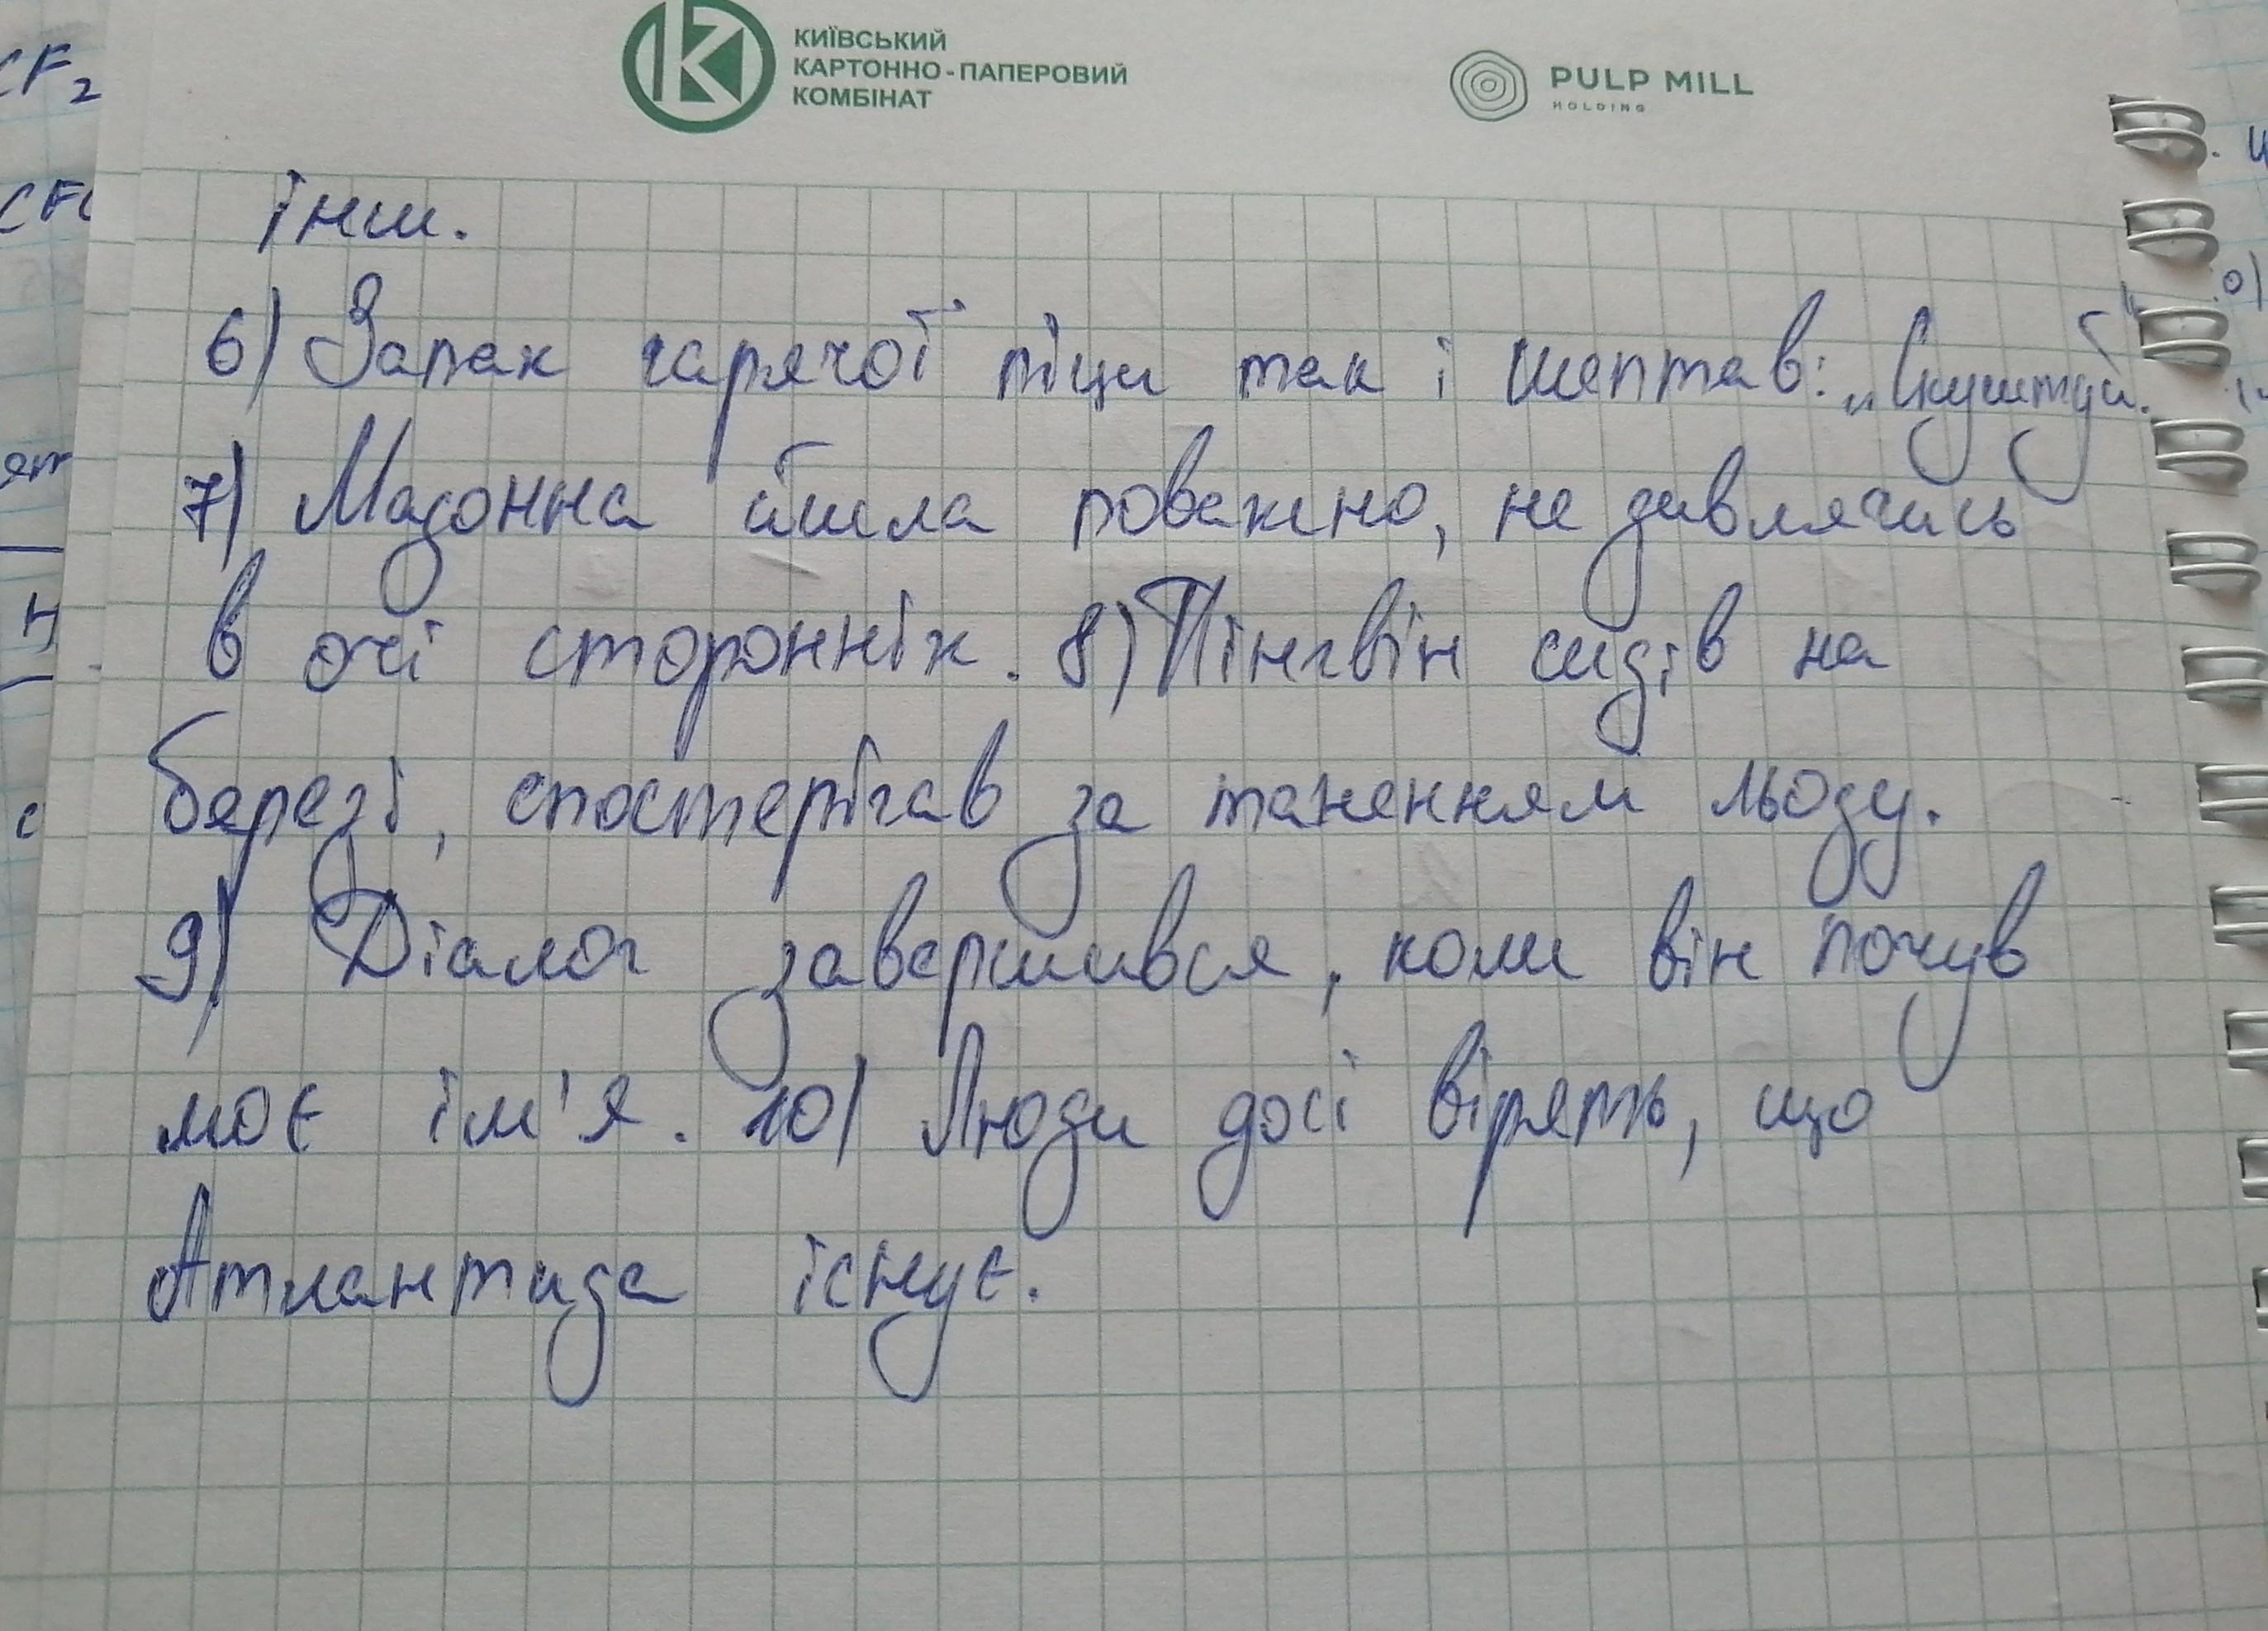 КИЇВСЬКИЙ
КАРТОННО-ПАПЕРОВИЙ
КОМБІНАТ
PULP MILL
HOLDING
CF2
інш.
6) Запах гарячої піци так і шептав: „Скуштуй."
7) Мадонна йшла поважно, не дивлячись
в очі сторонніх. 8) Пінгвін сидів на
березі, спостерігав за таненням льоду.
9) Діалог завершився, коли він почув
моє ім'я. 10) Люди досі вірять, що
Атлантида існує.